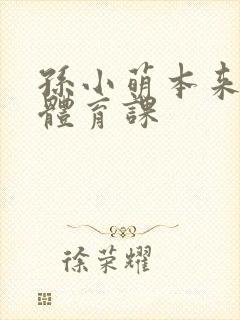 孫小萌本来
體育課
徐荣耀